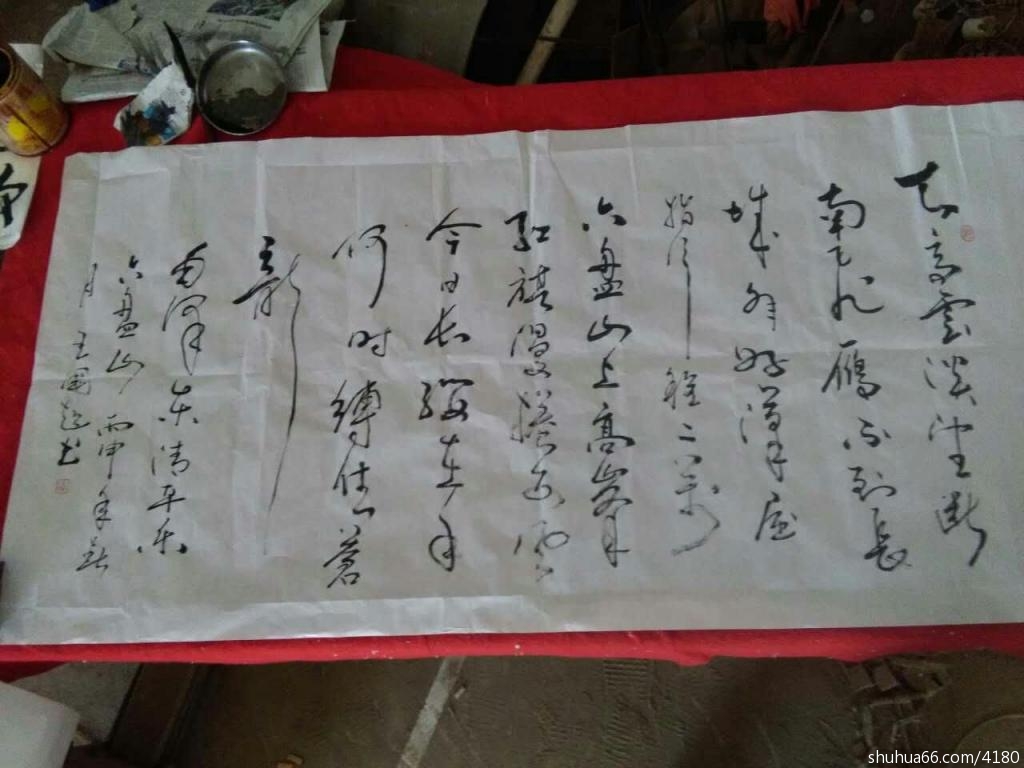 天高雲淡望断
南飛雁不到長
城非好漢屈
指行程二萬
六盘山上高峯
紅旗漫捲西風
今日长缨在手
何时縛住蒼
龍
毛澤东清平乐
六盘山丙申年
月王國书
shuhua66.com/4180